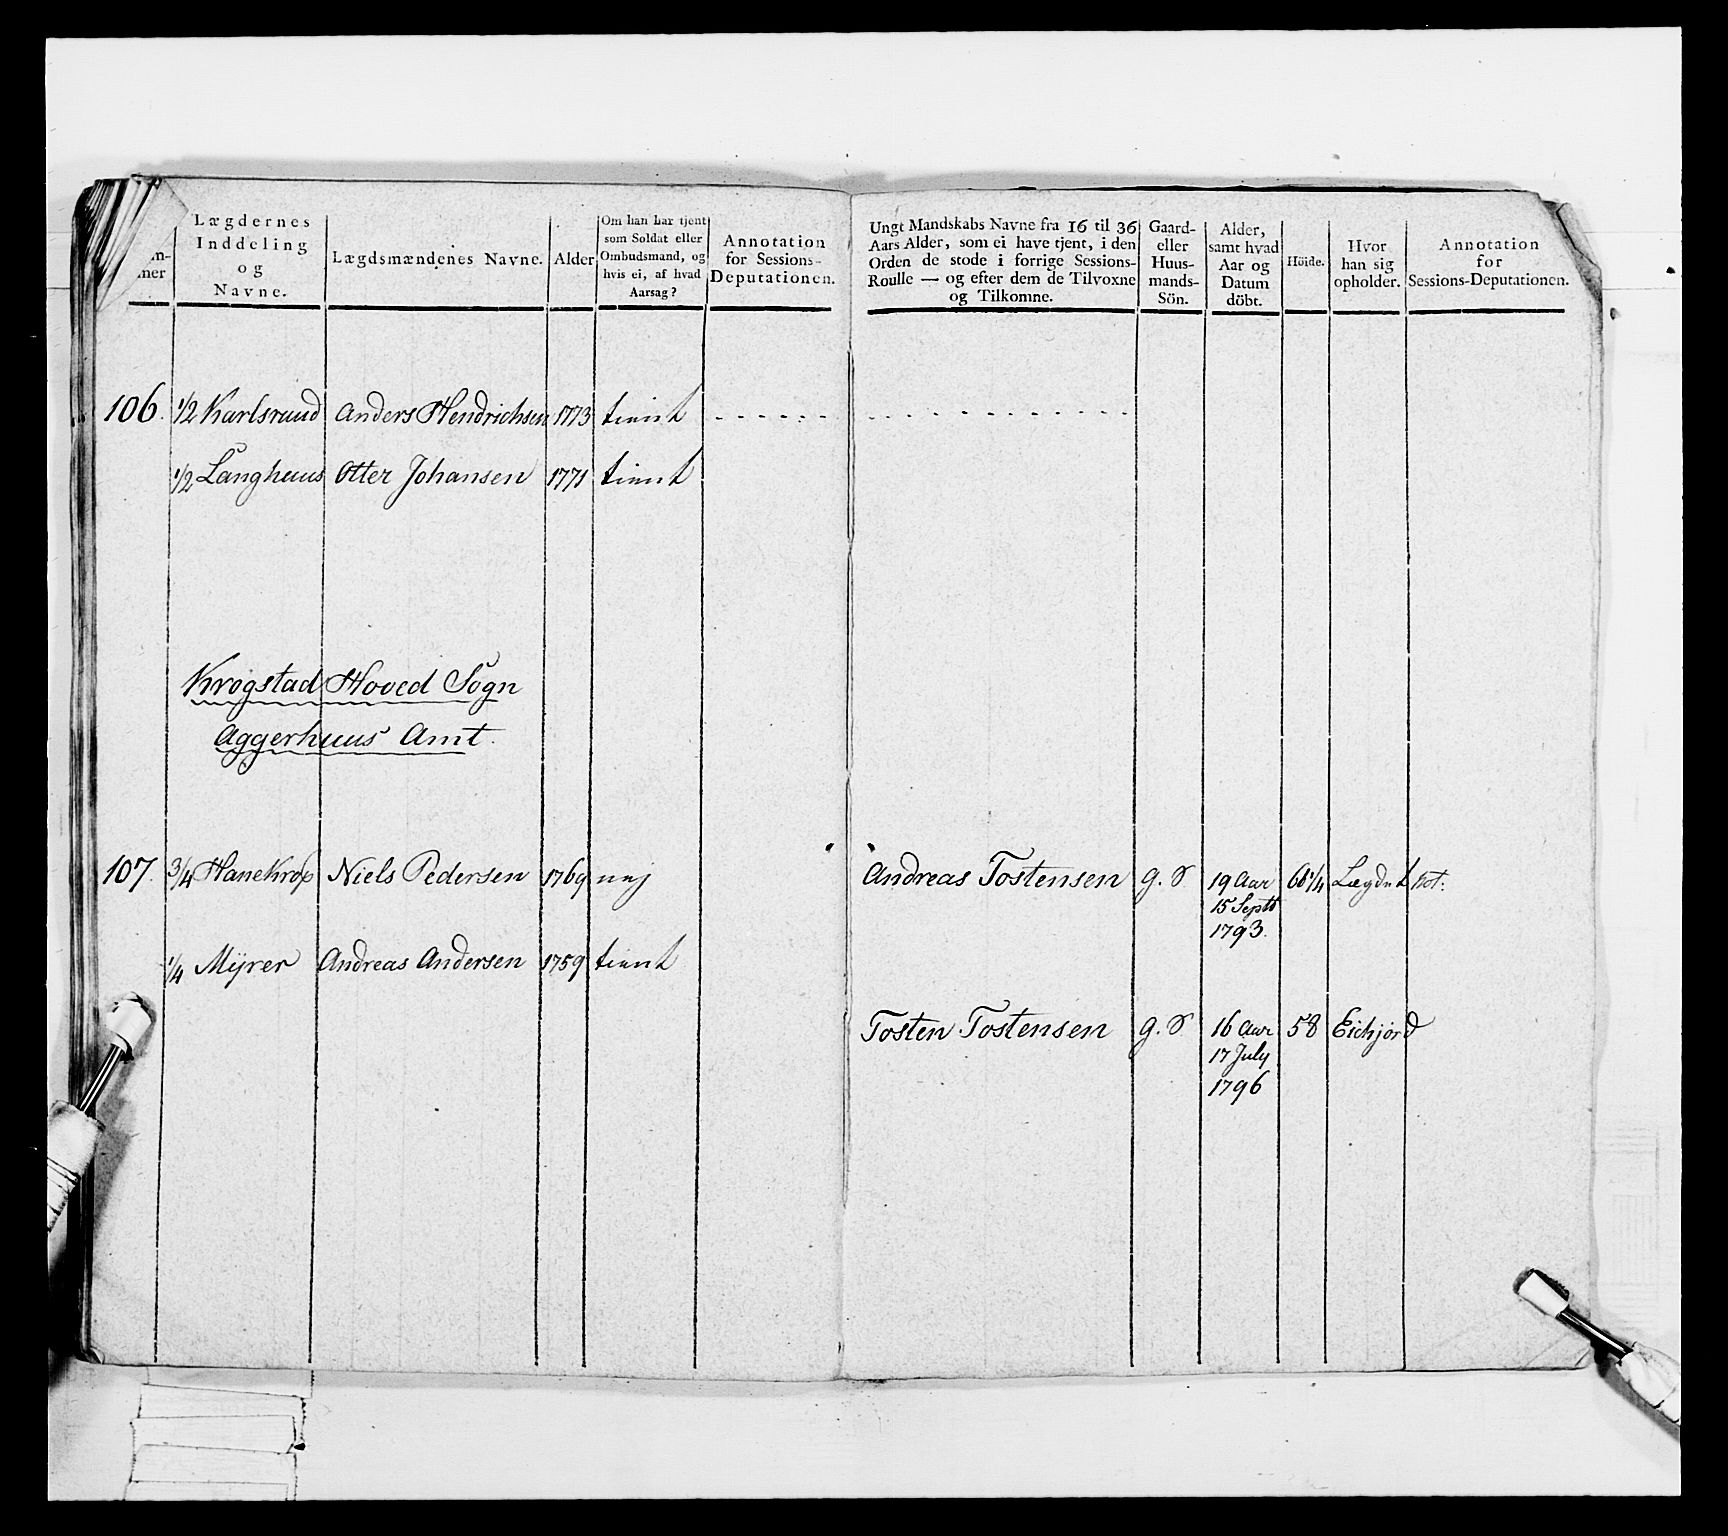 Lægdernes
Inddeling
og
Navne.
Lægdsmændenes Navne.
Alder
Om han har tjent
som Soldat eller
Ombudsmand, og
hvis ei, af hvad
Aarsag?
Annotation
for Sessions-
Deputationen.
Ungt Mandskabs Navne fra 16 til 36
Aars Alder, som ei have tjent, i den
Orden de stode i forrige Sessions-
Roulle — og efter dem de Tilvoxne
og Tilkomne.
Gaard-
eller
Huus-
mands-
Sön.
Alder,
samt hvad
Aar og
Datum
döbt.
Höide.
Hvor
han sig
opholder.
Annotation
for
Sessions-Deputationen.
106. 1/2 Karlsruud Anders Hendrichsen 1773 tient
1/2 Langhuus Otter Johansen 1771 tient
Krogstad Hoved Sogn
Aggerhuus Amt.
107. 3/4 Hanekrop Niels Pedersen 1769 nej Andreas Tostensen g. S 19 Aar
15 Septb
1793.
Lægdet
1/4 Myrer Andreas Andersen 1759 tient
Tosten Tostensen g. S 16 Aar 58
17 July
1796